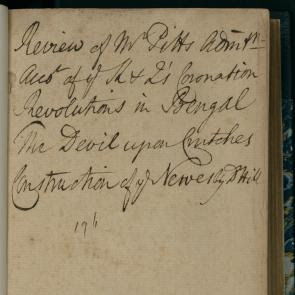 Review of Mr Pitts Admn
Acct of ye K & Q's Coronation
Revolutions in Bengal
The Devil upon Crutches
Construction of ye Nerves by Dr Hill
176